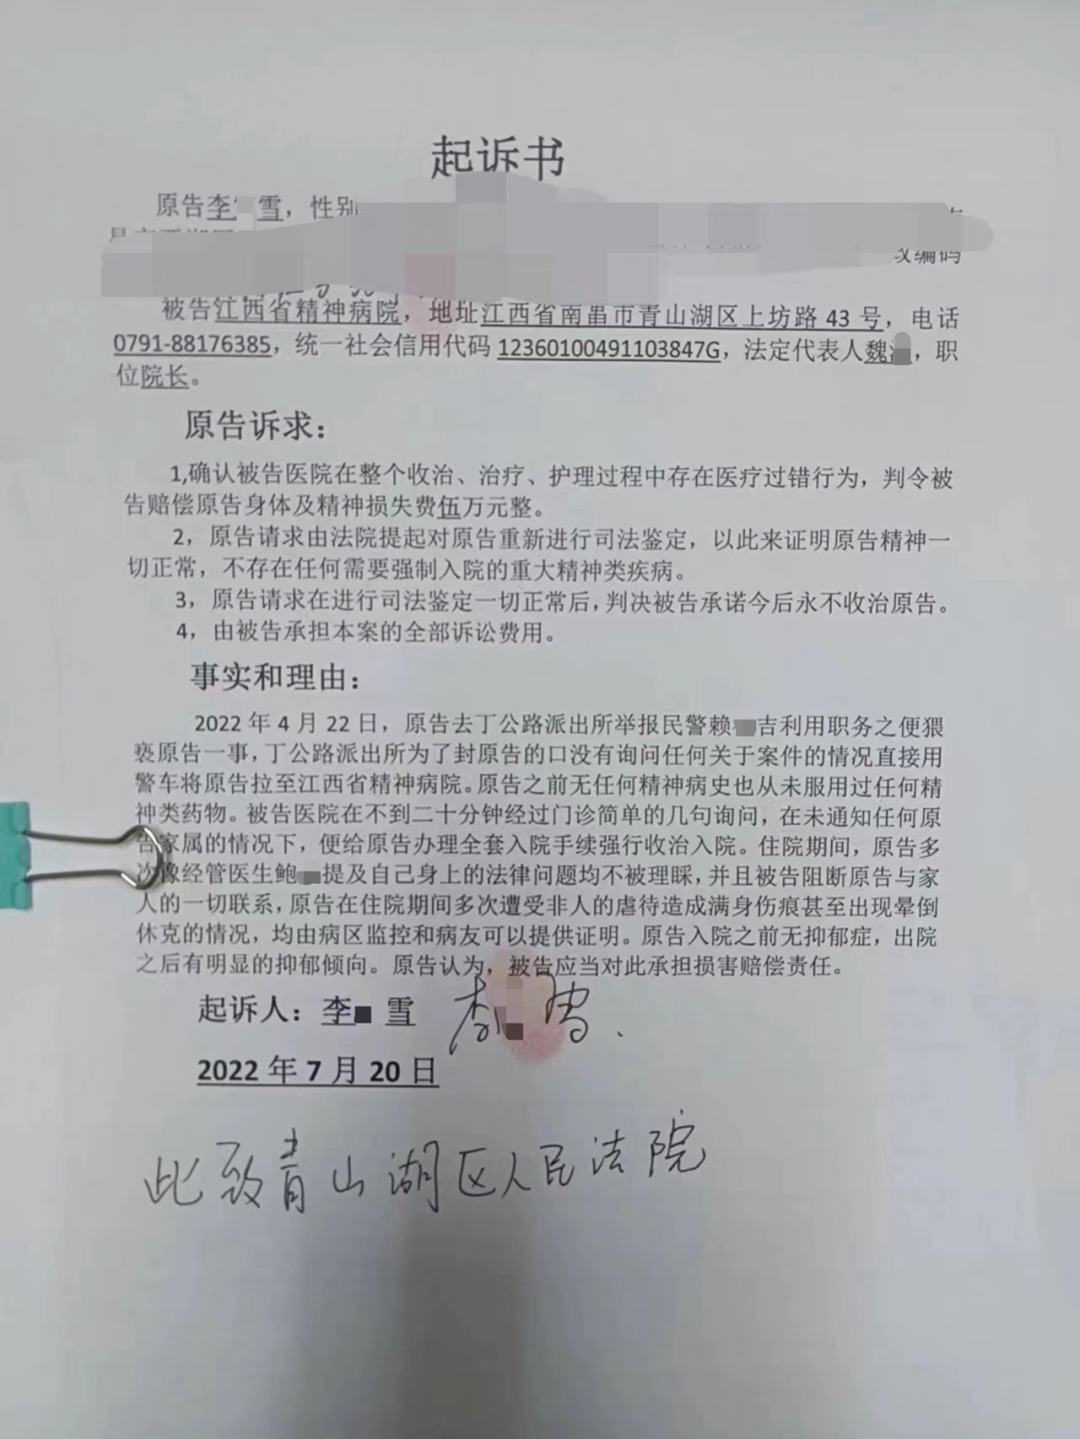 起诉书
原告李 雪，性别
改编码
被告江西省精神病院，地址江西省南昌市青山湖区上坊路 43 号，电话
0791-88176385，统一社会信用代码 12360100491103847G，法定代表人魏 ，职
位院长。
原告诉求：
1,确认被告医院在整个收治、治疗、护理过程中存在医疗过错行为，判令被
告赔偿原告身体及精神损失费伍万元整。
2，原告请求由法院提起对原告重新进行司法鉴定，以此来证明原告精神一
切正常，不存在任何需要强制入院的重大精神类疾病。
3，原告请求在进行司法鉴定一切正常后，判决被告承诺今后永不收治原告。
4，由被告承担本案的全部诉讼费用。
事实和理由：
2022 年 4 月 22 日，原告去丁公路派出所举报民警赖 吉利用职务之便猥
亵原告一事，丁公路派出所为了封原告的口没有询问任何关于案件的情况直接用
警车将原告拉至江西省精神病院。原告之前无任何精神病史也从未服用过任何精
神类药物。被告医院在不到二十分钟经过门诊简单的几句询问，在未通知任何原
告家属的情况下，便给原告办理全套入院手续强行收治入院。住院期间，原告多
次像经管医生鲍 提及自己身上的法律问题均不被理睬，并且被告阻断原告与家
人的一切联系，原告在住院期间多次遭受非人的虐待造成满身伤痕甚至出现晕倒
休克的情况，均由病区监控和病友可以提供证明。原告入院之前无抑郁症，出院
之后有明显的抑郁倾向。原告认为，被告应当对此承担损害赔偿责任。
起诉人：李 雪 李 雪
2022 年 7 月 20 日
此致青山湖区人民法院